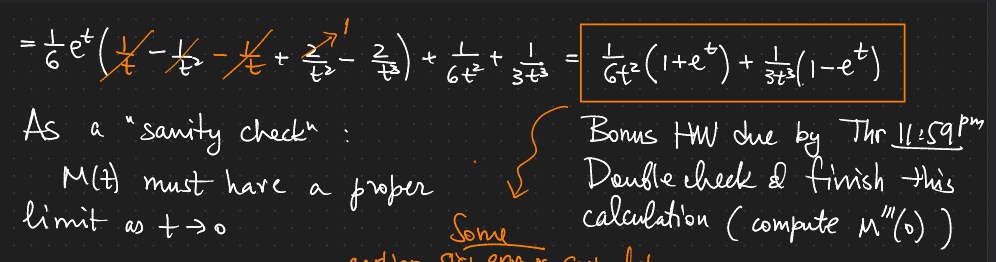 = 1/6 e^t ( 1/t - 1/t² - 1/t + 2/t² 1 - 2/t³ ) + 1/6t² + 1/3t³ = 1/6t² (1+e^t) + 1/3t³ (1-e^t)
As a "sanity check" :
M(t) must have a proper
limit as t → 0
Bonus HW due by Thr 11:59pm
Double check & finish this
calculation ( compute M'''(0) )
Some